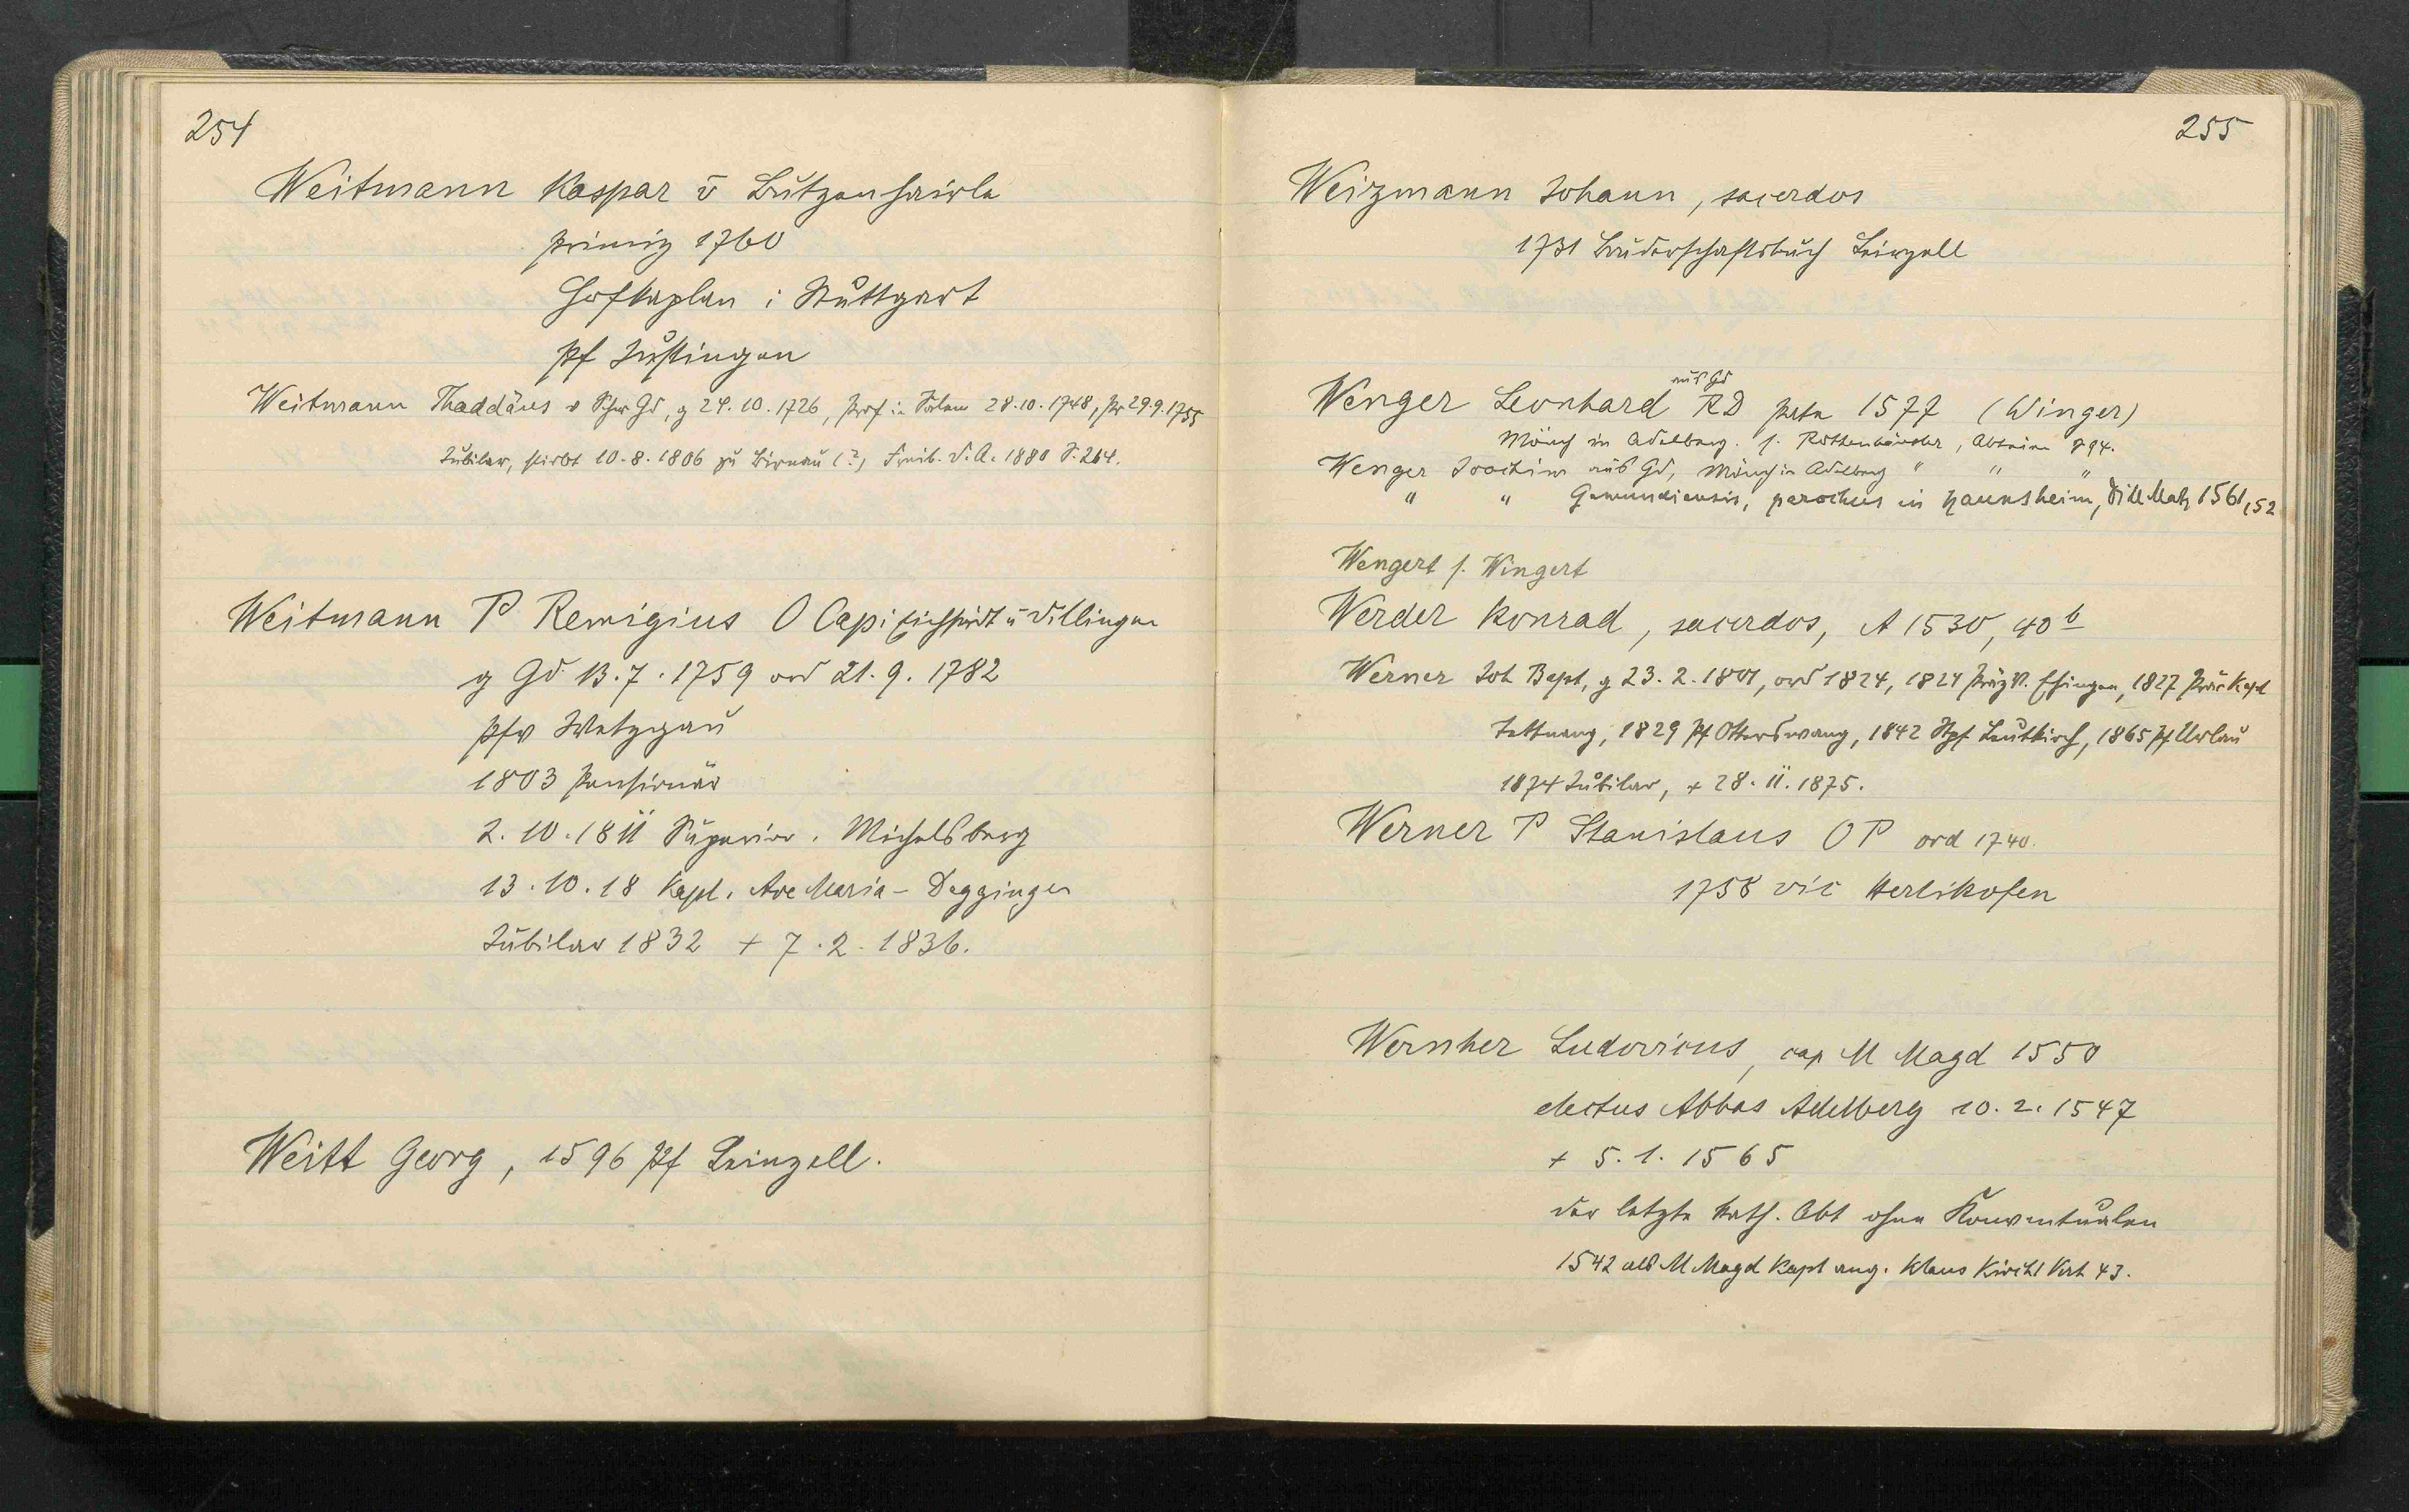 254
Weitmann Kaspar v Butzenhairle
primiz 1760
Hofkaplan i Stuttgart
Pf Justingen
Weitmann Thaddäus v Schw Gd, g 24.10.1726, Prof in Salem 28.10.1748, Pr 29.9.1755
Jubilar, stirbt 10.8.1806 zu Birnau (?) Freib. D.A. 1880 S. 264.
Weitmann P Remigius O Cap i Eichstädt u Dillingen
g Gd 13.7.1759 ord 21.9.1782
Pfv Wetzgau
1803 Pensionär
2.10.1811 Superior. Michelsberg
13.10.18 Kapl. Ave Maria - Deggingen
Jubilar 1832 + 7.2.1836.
Weitt Georg, 1596 Pf Leinzell.
255
Weizmann Johann, sacerdos
1731 Bruderschaftsbuch Leinzell
aus Gd
Wenger Leonhard RD 1577 (Winger)
Mönch in Adelberg. s. Rottenhäusler, Abteien 94.
Wenger Joachim aus Gd, Mönch in Adelberg " " "
" " Gemundiensis, parochus in Haunsheim, Dill Matr 1561, 52
Wengert s. Wingert
Werder Konrad, sacerdos, A 1530, 40 b
Werner Joh Bapt, g 23.2.1801, ord 1824, 1824 PräzV. Ehingen, 1827 PräcKapl
Tettnang, 1829 Pf Otterswang, 1842 Stpf Leutkirch, 1865 Pf Urlau
1874 Jubilar, + 28.11.1875.
Werner P Stanislaus OP ord 1740.
1758 vic Herlikofen
Wernher Ludovicus, cap M Magd 1550
electus Abbas Adelberg 10.2.1547
+ 5.1.1565
der letzte kath. Abt ohne Konventualen
1542 als M Magd Kapl ang. Klaus Kirchl Vert 43.